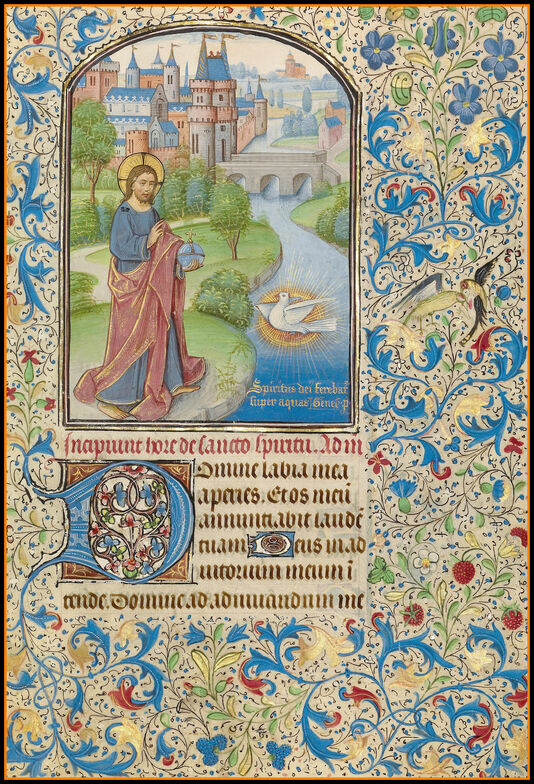 Spiritus dei ferebat
super aquas Genes p
Incipiunt hore de sancto spiritu. Ad m
Domine labia mea
aperies. Et os meū
annunciabit laudē
tuam Deus in ad
iutorium meum ī
tende. Domine ad adiuuandum me